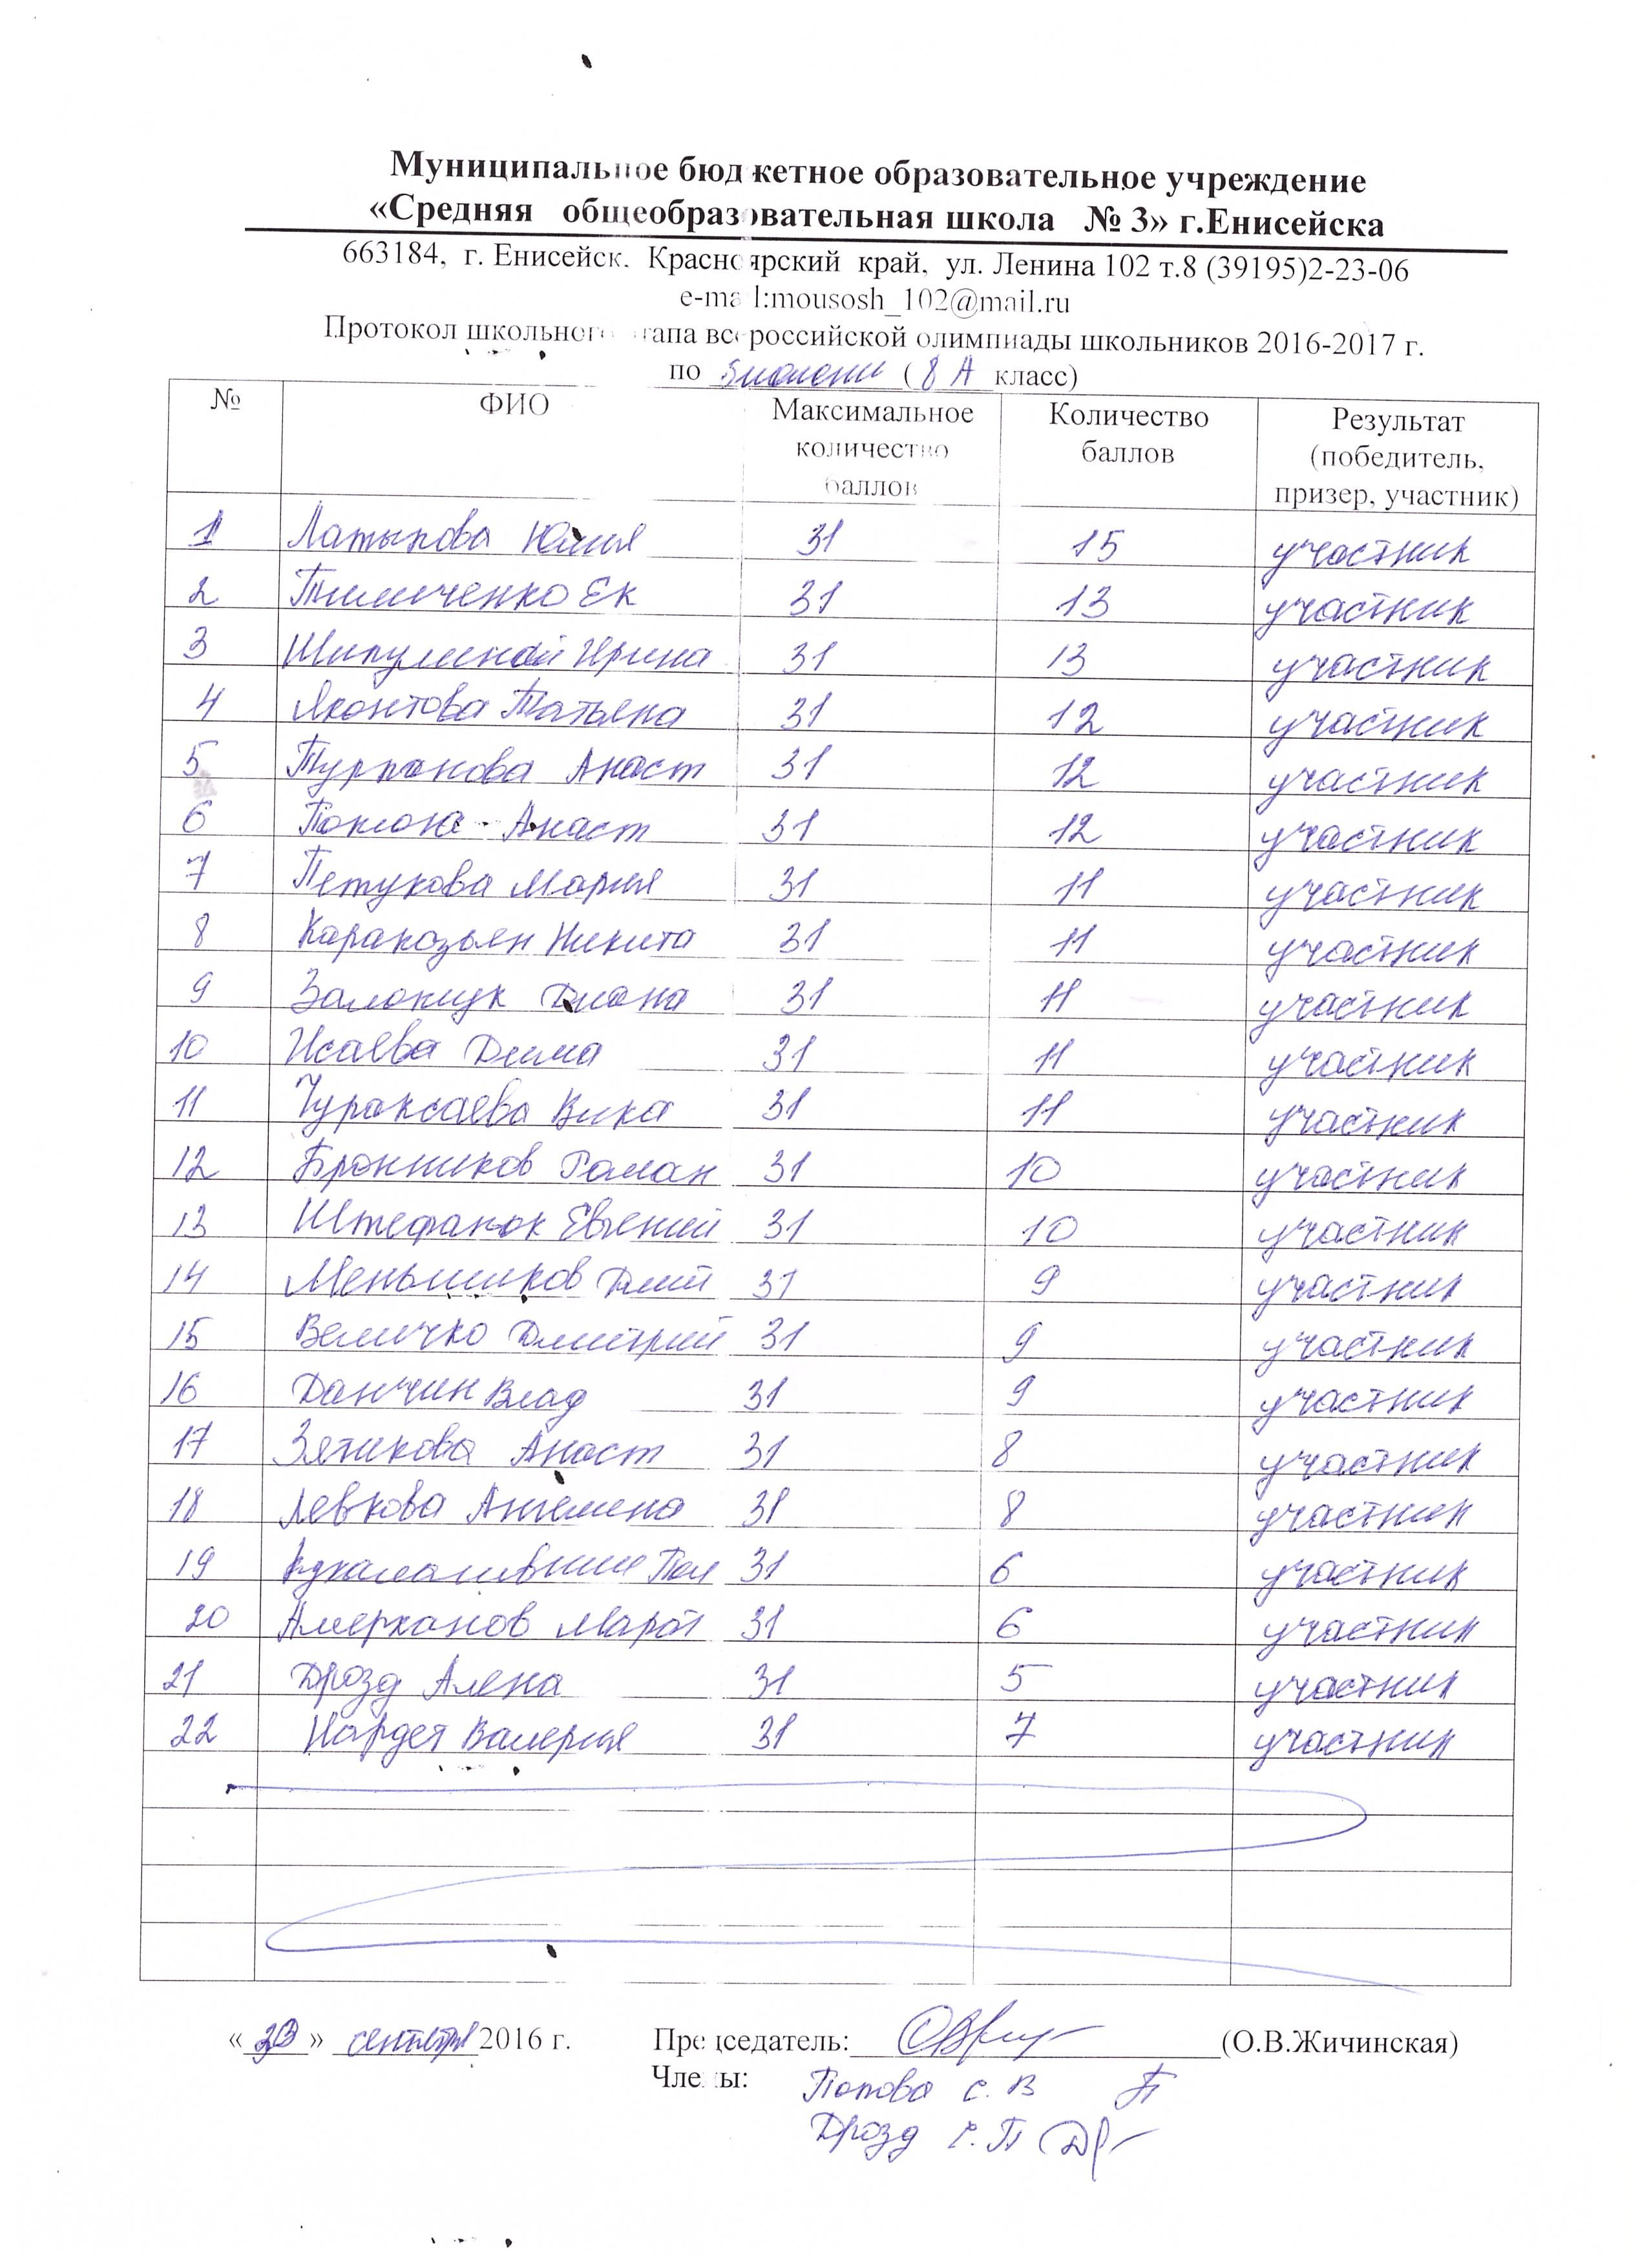 Муниципальное бюджетное образовательное учреждение
«Средняя общеобразовательная школа № 3» г.Енисейска
663184, г. Енисейск. Красноярский край, ул. Ленина 102 т.8 (39195)2-23-06
e-mail:mousosh_102@mail.ru
Протокол школьного этапа всероссийской олимпиады школьников 2016-2017 г.
по биологии (8 А класс)
№ ФИО Максимальное количество баллов Количество баллов Результат (победитель, призер, участник)
1 Латыпова Юлия 31 15 участник
2 Тимченко Ек 31 13 участник
3 Ирина 31 13 участник
4 Яхонтова Татьяна 31 12 участник
5 Турпанова Анаст 31 12 участник
6 Анаст 31 12 участник
7 Петухова Мария 31 11 участник
8 Каракозьян Никита 31 11 участник
9 Диана 31 11 участник
10 Исаева Дима 31 11 участник
11 Вика 31 11 участник
12 Бронников Роман 31 10 участник
13 Штефанюк Евгений 31 10 участник
14 Меньшиков Дмит 31 9 участник
15 Величко Дмитрий 31 9 участник
16 Данчин Влад 31 9 участник
17 Зятикова Анаст 31 8 участник
18 Левкова Ангелина 31 8 участник
19 31 6 участник
20 Амерханов Марат 31 6 участник
21 Дрозд Алена 31 5 участник
22 Нардет Валерия 31 7 участник
« » сентября 2016 г. Председатель: (О.В.Жичинская)
Члены: Попова С. В
Дрозд